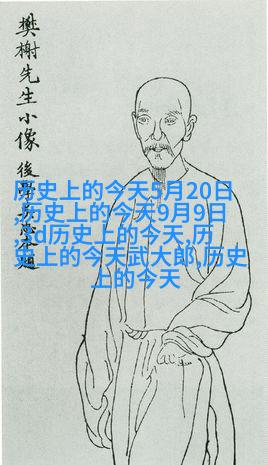 樊榭先生小像
後學
历史上的今天5月20日
,历史上的今天9月9日
,sd历史上的今天,历
史上的今天武大郎,历史
上的今天